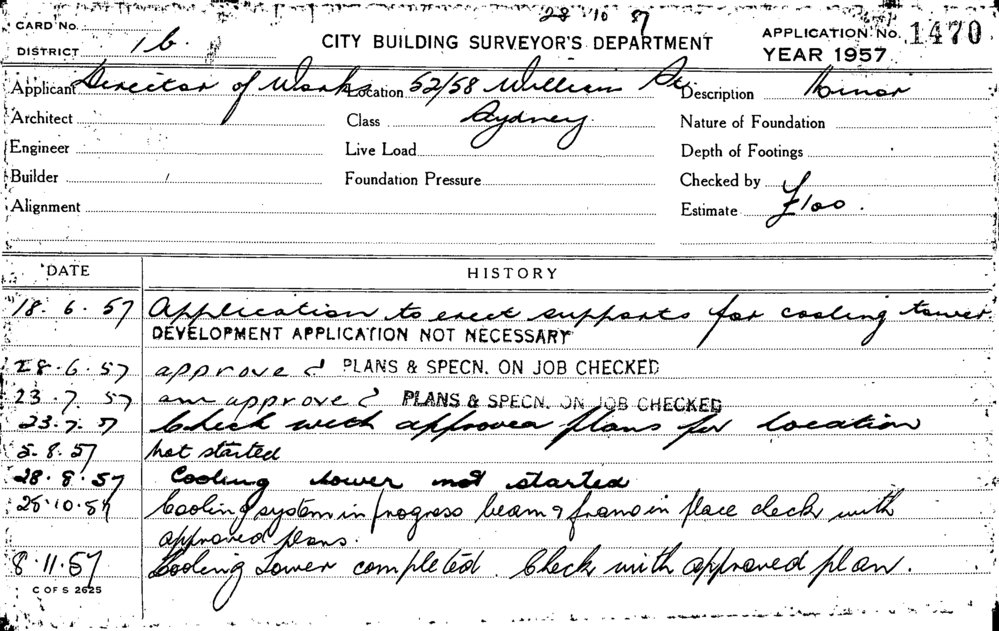 28 10 7
CARD No.
DISTRICT 1b. CITY BUILDING SURVEYOR'S DEPARTMENT APPLICATION No. 1470
YEAR 1957
Applicant Director of Works Location 52/58 William St. Description Minor
Architect Class Sydney. Nature of Foundation
Engineer Live Load Depth of Footings
Builder Foundation Pressure Checked by
Alignment Estimate £100.
DATE HISTORY
18.6.57 Application to erect supports for cooling tower
DEVELOPMENT APPLICATION NOT NECESSARY
28.6.57 approved PLANS & SPECN. ON JOB CHECKED
23.7.57 am approved PLANS & SPECN. ON JOB CHECKED
23.7.57 Check with approved plans for location
5.8.57 not started
28.8.57 Cooling tower not started
25.10.57 Cooling system in progress beam & frame in place check with
approved plans.
8.11.57 Cooling Tower completed. Check with approved plan.
C OF S 2625